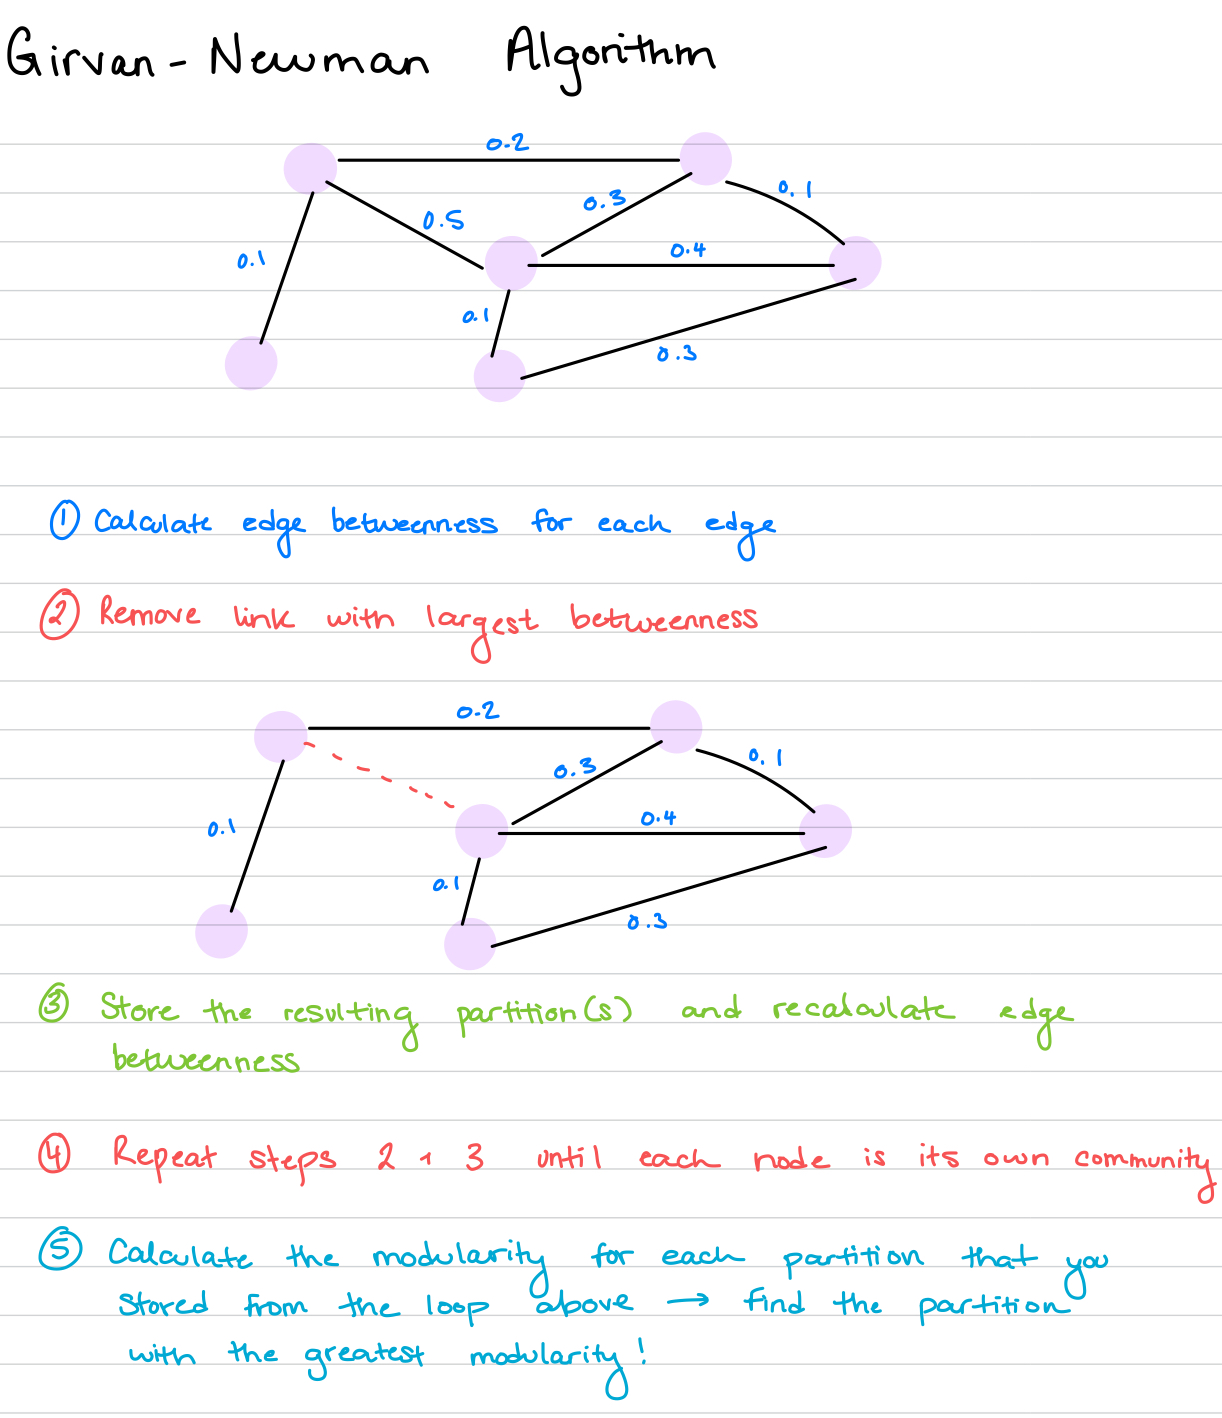 Girvan - Newman Algorithm
0.2
0.3
0.1
0.5
0.1
0.4
0.1
0.3
① Calculate edge betweenness for each edge
② Remove link with largest betweenness
0.2
0.3
0.1
0.1
0.4
0.1
0.3
③ Store the resulting partition(s) and recalculate edge
betweenness
④ Repeat steps 2 + 3 until each node is its own community
⑤ Calculate the modularity for each partition that you
stored from the loop above → find the partition
with the greatest modularity!